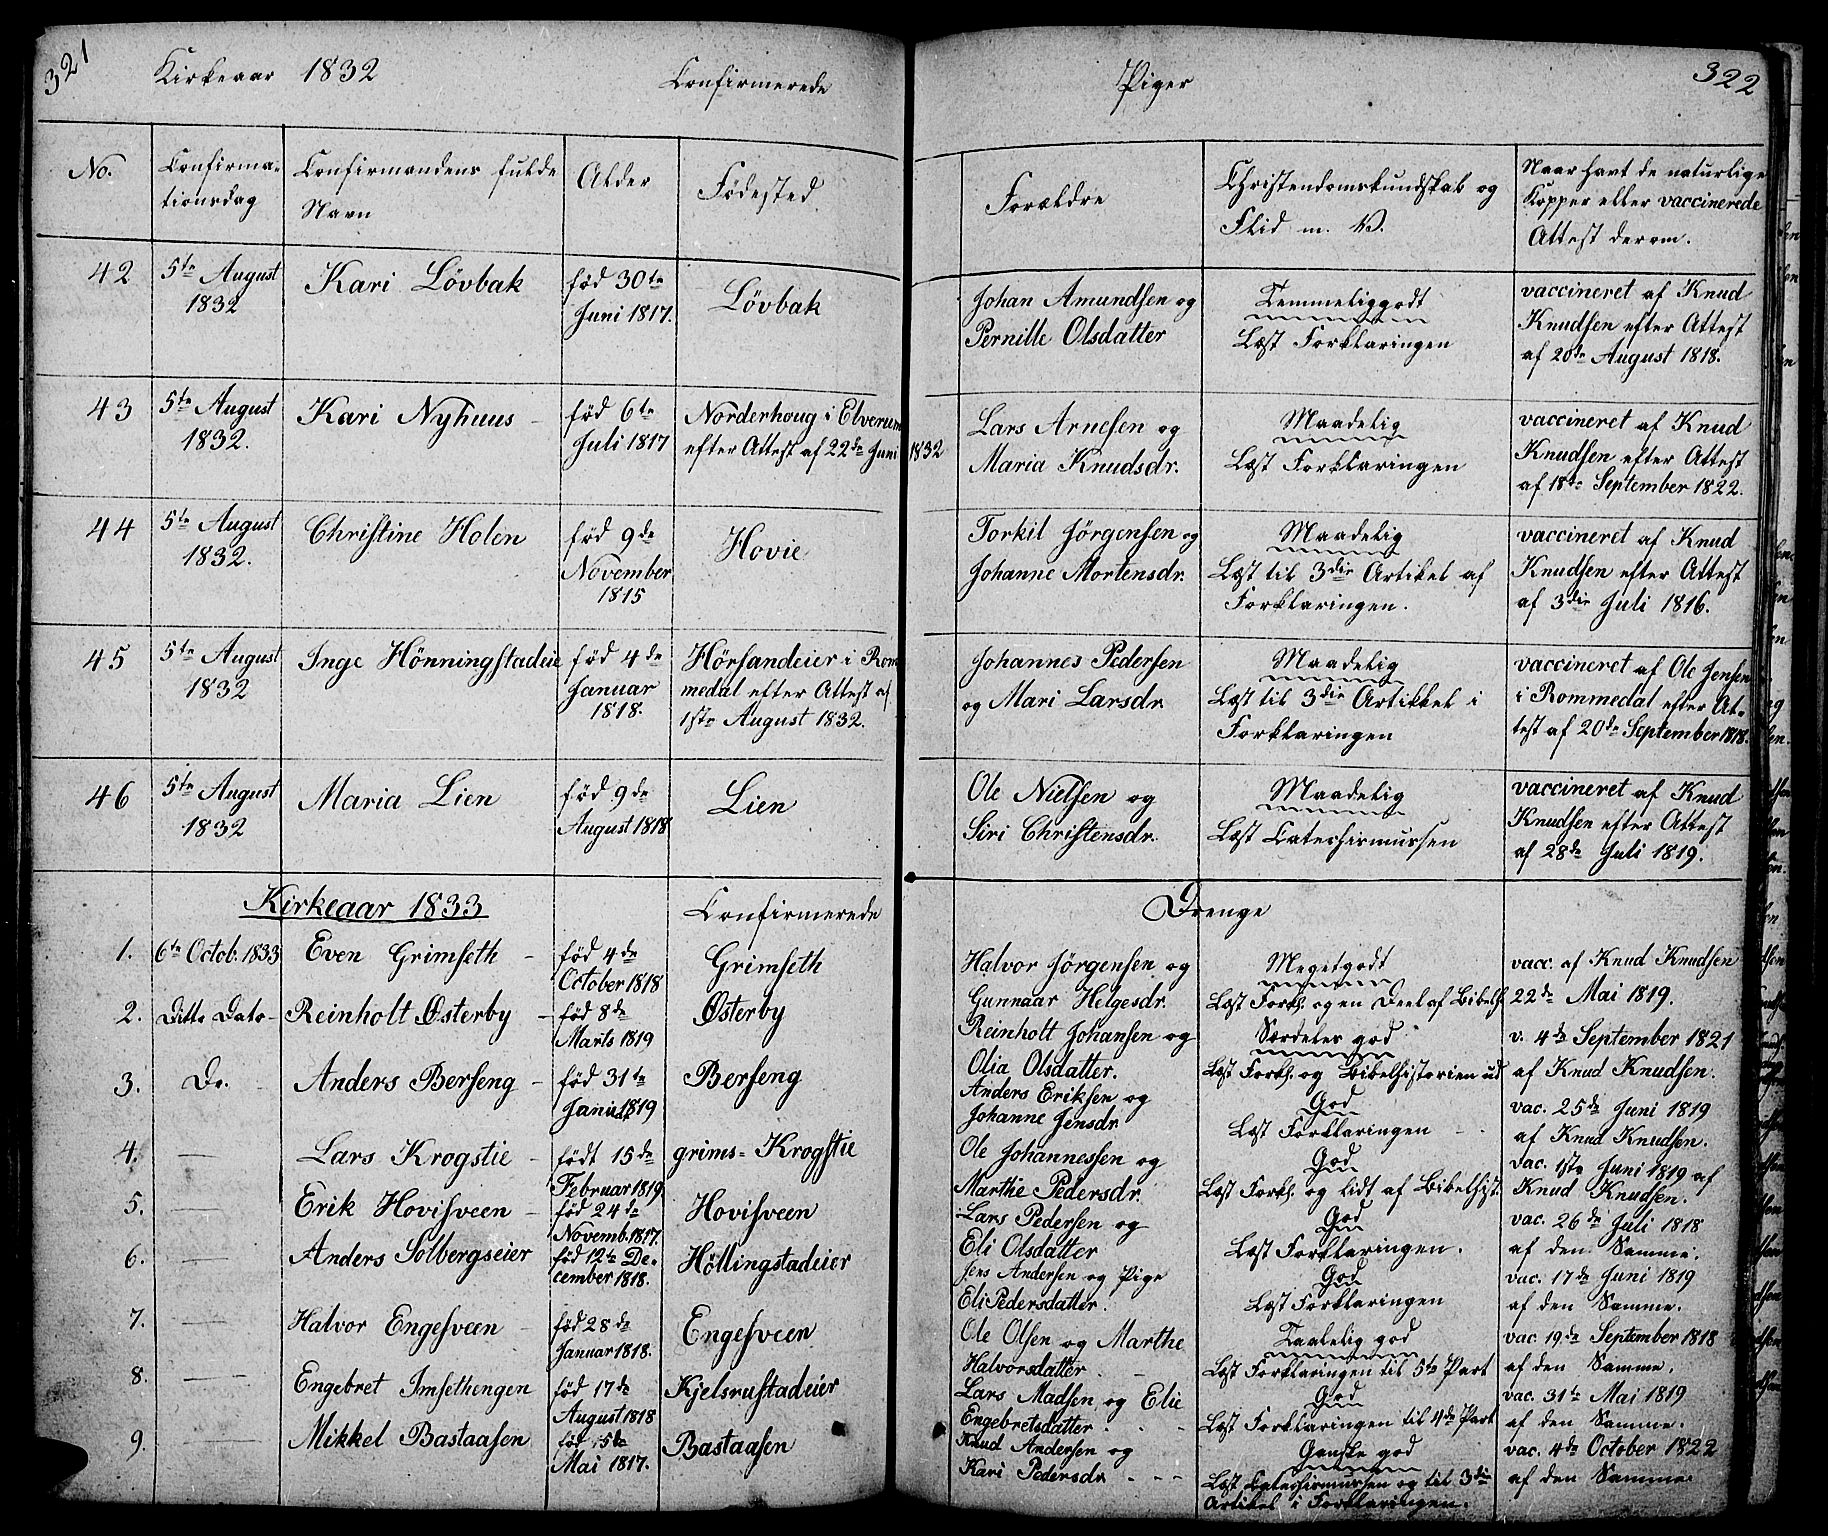 321
Kirkeaar 1832 Confirmerede
Piger 322
No. Confirma-
tionsdag Confirmandens fulde
Navn Alder Fødested Forældre Christendomskundskab og
Flid m. V. Naar havt de naturlige
Kopper eller vaccinerede
Attest derom.
42 5te August
1832 Kari Lövbak föd 30te
Juni 1817. Lövbak Johan Amundsen og
Pernille Olsdatter Temmeliggodt
Læst Forklaringen vaccineret af Knud
Knudsen efter Attest
af 20de August 1818.
43 5te August
1832. Kari Nyhuus föd 6te
Juli 1817 Norderhoug i Elverum
efter Attest af 22de Juni 1832 Lars Arnesen og
Maria Knudsdr. Maadelig
Læst Forklaringen vaccineret af Knud
Knudsen efter Attest
af 18de September 1822.
44 5te August
1832. Christine Holen föd 9de
November
1815 Hovie Torkil Jörgensen og
Johanne Mortensdr. Maadelig
Læst til 3die Artikel af
Forklaringen. vaccineret af Knud
Knudsen efter Attest
af 3die Juli 1816.
45 5te August
1832 Inge Hönningstadeie föd 4de
Januar
1818. Hörsandeier i Rom
medal efter Attest af
1ste August 1832. Johannes Pedersen
og Mari Larsdr. Maadelig
Læst til 3die Artikkel i
Forklaringen vaccineret af Ole Jensen
i Rommedal efter At-
test af 20de September 1818.
46 5te August
1832 Maria Lien föd 9de
August 1818 Lien Ole Nielsen og
Siri Christensdr. Maadelig
Læst Catechismussen vaccineret af Knud
Knudsen efter Attest
af 28de Juli 1819.
Kirkeaar 1833 Confirmerede Drenge
1. 6te Octob. 1833 Even Grimseth föd 4de
October 1818 Grimseth Halvor Jörgensen og
Gunnaar Helgesdr. Megetgodt
Læst Forkl. og en Deel af Bibelh. vacc. af Knud Knudsen
22de Mai 1819.
2. Ditto Dato Reinholt Østerby föd 8de
Marts 1819 Østerby Reinholt Johansen og
Olia Olsdatter. Særdeles god
Læst Forkl. og Bibelhistorien ud v. 4de September 1821
af Knud Knudsen.
3. Do. Anders Berseng föd 31te
Januar 1819 Berseng Anders Eriksen og
Johanne Jensdr. God
Læst Forklaringen vac. 25de Juni 1819
af Knud Knudsen.
4. — Lars Krogstie födt 15de
Februar 1819 grims=Krogstie Ole Johannessen og
Marthe Pedersdr. God
Læst Forkl. og lidt af Bibelhist. vac. 1ste Juni 1819 af
Knud Knudsen.
5. — Erik Hovisveen föd 24de
Novemb. 1817 Hovisveen Lars Pedersen og
Eli Olsdatter God
Læst Forklaringen. vac. 26de Juli 1818
af den Samme.
6. — Anders Solbergseier föd 12te De-
cember 1818. Höllingstadeier Jens Andersen og Pige
Eli Pedersdatter. God
Læst Forklaringen vac. 17de Juni 1819
af den Samme.
7. — Halvor Engesveen föd 28de
Januar 1818. Engesveen Ole Olsen og Marthe
Halvorsdatter Taalelig god
Læst Forklaringen til 5te Part vac. 19de September 1818
af den Samme.
8. — Engebret Imsethengen föd 17de
August 1818 Kjelsrustadeier Lars Madsen og Elie
Engebretsdatter. God
Læst Forklaringen til 4de Part vac. 31te Mai 1819
af den Samme.
9. Mikkel Bastaasen föd 15de
Mai 1817. Bastaasen Knud Andersen og
Kari Pedersdr. Ganske god
Læst Catechismussen og til 3die
Artikel i Forklaringen. vac. 4de October 1822
af den Samme